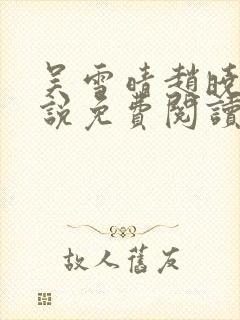 吴雪晴趙曉
說免費閱讀
故人舊友